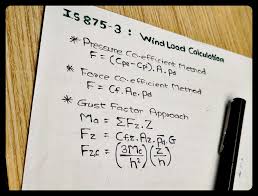 IS875-3 : Wind Load Calculation
* Pressure Co-efficient Method
F = (Cpe-Cpi).A.Pd
* Force Co-efficient Method
F = Cf.Ae.Pd
* Gust Factor Approach
Ma = ΣFz.Z
Fz = Cfz.Az.p̄d.G
Fzc = (3Mc/h²)(z/h)